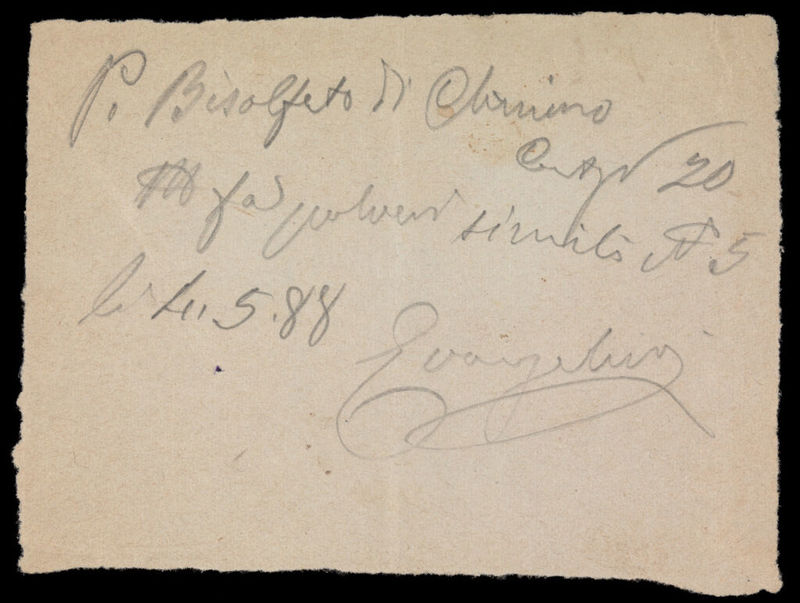 P. Bisolfato di Chinino
Centigr 20
fa polveri simili N 5
li 4. 5. 88
Evangelisti